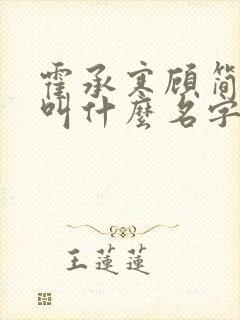 霍承寒顾简
叫什麼名字
王蓮蓮